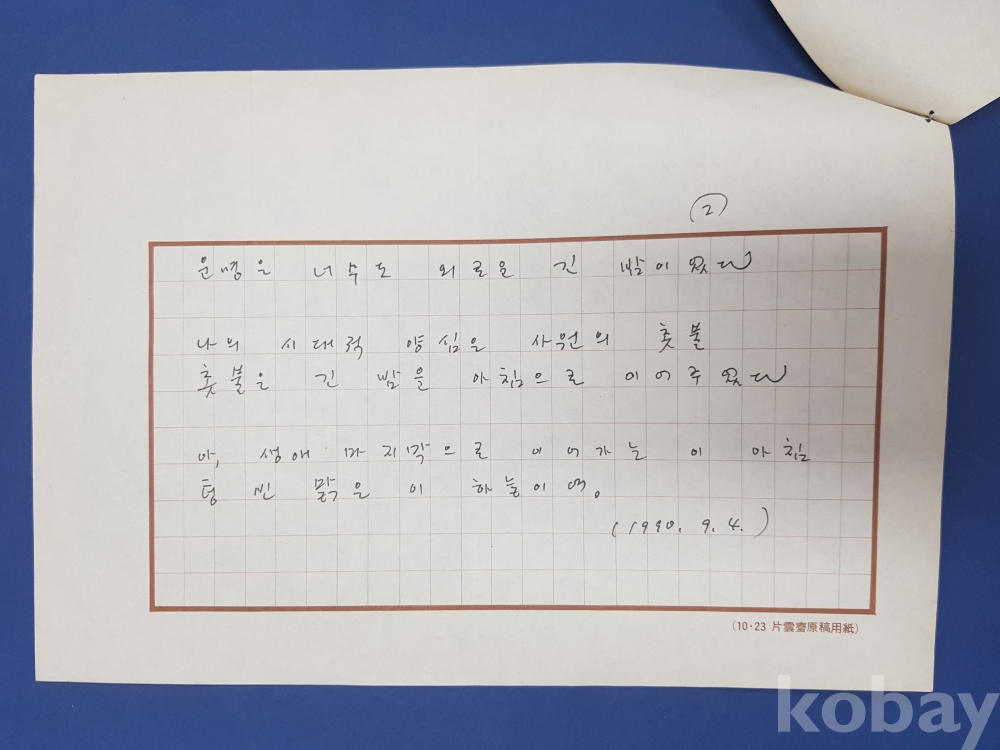 ②
운명은 너무도 외로운 긴 밤이었다
나의 시대적 양심은 사원의 촛불
촛불은 긴 밤을 아침으로 이어주었다
아, 생애 마지막으로 이어가는 이 아침
텅 빈 맑은 이 하늘이여。
(1990. 9. 4.)
(10·23 片雲齋原稿用紙)
kobay